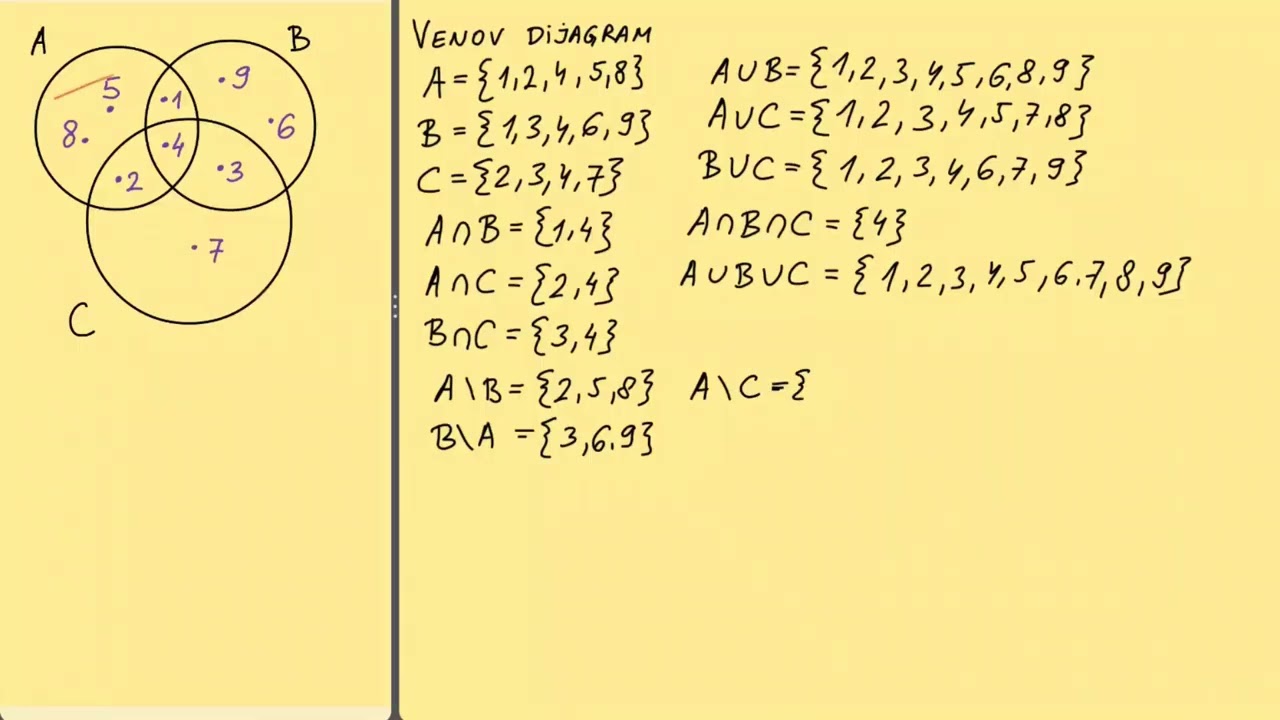 A
B
5
.1
.9
8.
.4
.6
.2
.3
.7
C
VENOV DIJAGRAM
A = {1,2,4,5,8}
B = {1,3,4,6,9}
C = {2,3,4,7}
A∩B = {1,4}
A∩C = {2,4}
B∩C = {3,4}
A\B = {2,5,8}
B\A = {3,6.9}
A∪B = {1,2,3,4,5,6,8,9}
A∪C = {1,2,3,4,5,7,8}
B∪C = {1,2,3,4,6,7,9}
A∩B∩C = {4}
A∪B∪C = {1,2,3,4,5,6.7,8,9}
A\C = {